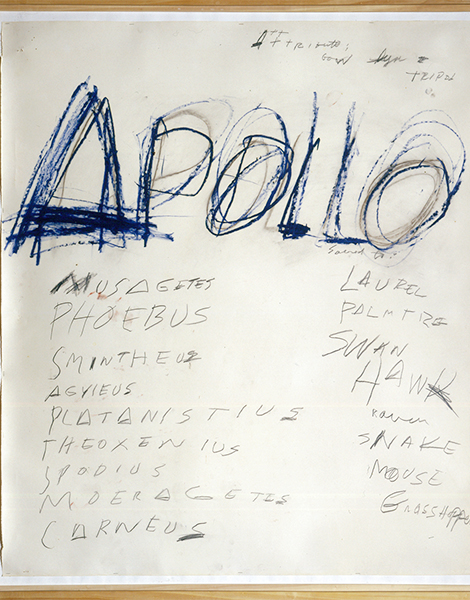 ATTRIBUTES;
BOW lyre &
TRIPOD
APOLLO
MUSAGETES
PHOEBUS
SMINTHEUS
AGYIEUS
PLATANISTIUS
THEOXENIUS
SPODIUS
MOERAGETES
CARNEUS
Sacred to
LAUREL
PALMTREE
SWAN
HAWK
RAVEN
SNAKE
MOUSE